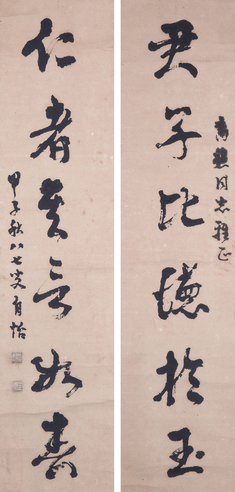 君子比德於玉
同志雅正
仁者其言如春
甲子秋八七叟肖怡